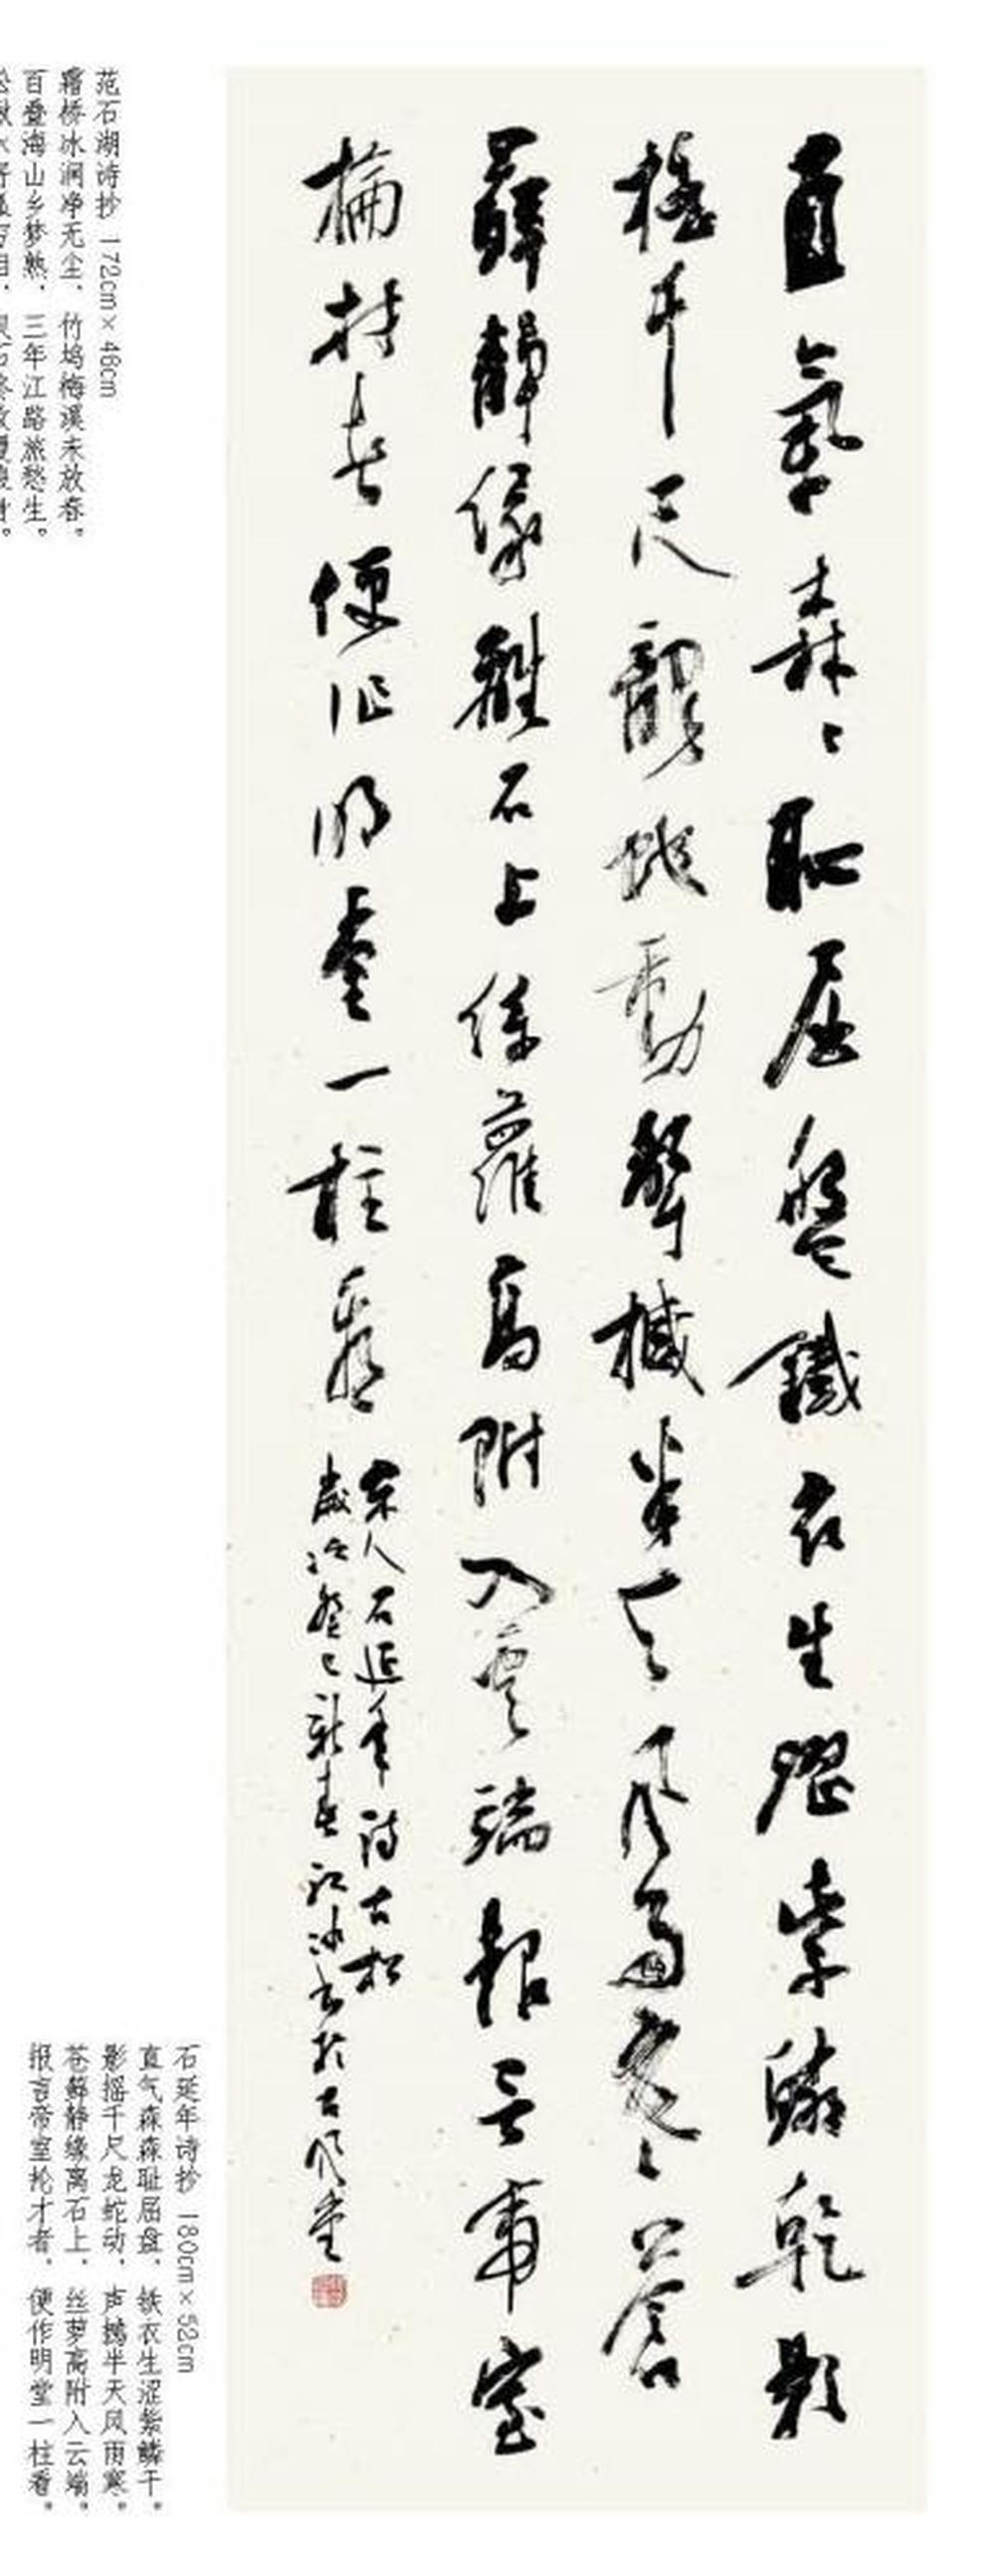 直氣森々耻屈盤鐵衣生澀紫鱗乾影
搖千尺龍蛇動聲撼半天風雨寒蒼
蘚靜緣離石上絲蘿高附入雲端報言帝室
掄材者便作明堂一柱看
宋人石延年詩古松
歲次癸巳新春書於古風堂
石延年诗抄 180cm×52cm
直气森森耻屈盘，铁衣生涩紫鳞干。
影摇千尺龙蛇动，声撼半天风雨寒。
苍藓静缘离石上，丝萝高附入云端。
报言帝室抡才者，便作明堂一柱看。
范石湖诗抄 172cm×46cm
霜桥冰涧净无尘，竹坞梅溪未放春。
百叠海山乡梦熟，三年江路旅愁生。